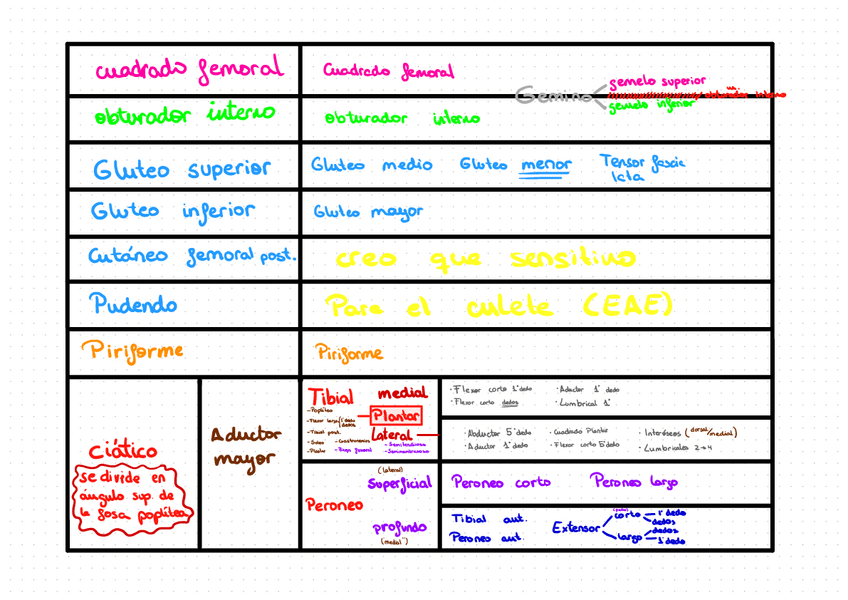 cuadrado femoral
Cuadrado femoral
Gemino
gemelo superior
obturador interno
gemelo inferior
obturador interno
obturador interno
Gluteo superior
Gluteo medio Gluteo menor Tensor fascia
lata
Gluteo inferior
Gluteo mayor
Cutáneo femoral post.
creo que sensitivo
Pudendo
Para el culete (EAE)
Piriforme
Piriforme
Ciático
se divide en
ángulo sup. de
la fosa poplítea
Aductor
mayor
Tibial
- Poplíteo
- Flexor largo 1º dedo
dedos
- Tibial post.
- Soleo - Gastrocnemios
- Plantar - Biceps femoral
- Semitendinoso
- Semimembranoso
medial
Plantar
Lateral
· Flexor corto 1º dedo · Aductor 1º dedo
· Flexor corto dedos · Lumbrical 1º
· Abductor 5º dedo · Cuadrado Plantar · Interóseos (dorsal/medial)
· Aductor 1º dedo · Flexor corto 5º dedo · Lumbricales 2→4
Peroneo
(lateral)
Superficial
Peroneo corto Peroneo largo
profundo
(medial)
Tibial ant.
Peroneo ant.
Extensor
corto
1º dedo
dedos
largo
dedos
1º dedo